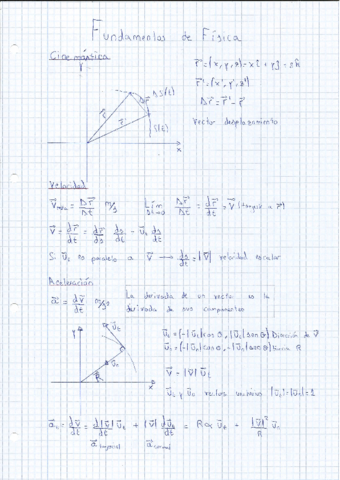 Fundamentos de Física
Cinemática
r⃗ = (x, y, z) = xî + yĵ + zk̂
r⃗' = (x', y', z')
Δr⃗ = r⃗' - r⃗
Vector desplazamiento
ΔS(t)
S(t)
x
Velocidad
V⃗ = Δr⃗/Δt m/s Lím Δt→0 Δr⃗/Δt = dr⃗/dt = V⃗
V⃗ = dr⃗/dt = dr⃗/ds ds/dt = u⃗t ds/dt
Si u⃗t es paralelo a V⃗ → ds/dt = |V⃗| velocidad escalar
Aceleración
a⃗ = dv⃗/dt La derivada de un vector es la
derivada de sus componentes
y
u⃗t
u⃗n
R
x
Dirección de V⃗
V⃗ = |V⃗| u⃗t
u⃗t y u⃗n vectores unitarios |u⃗t| = |u⃗n| = 1
= dv⃗/dt = d|V⃗|/dt u⃗t + |V⃗| du⃗t/dt = R∝ u⃗t + |V⃗|²/R u⃗n
a⃗ tangencial a⃗ normal